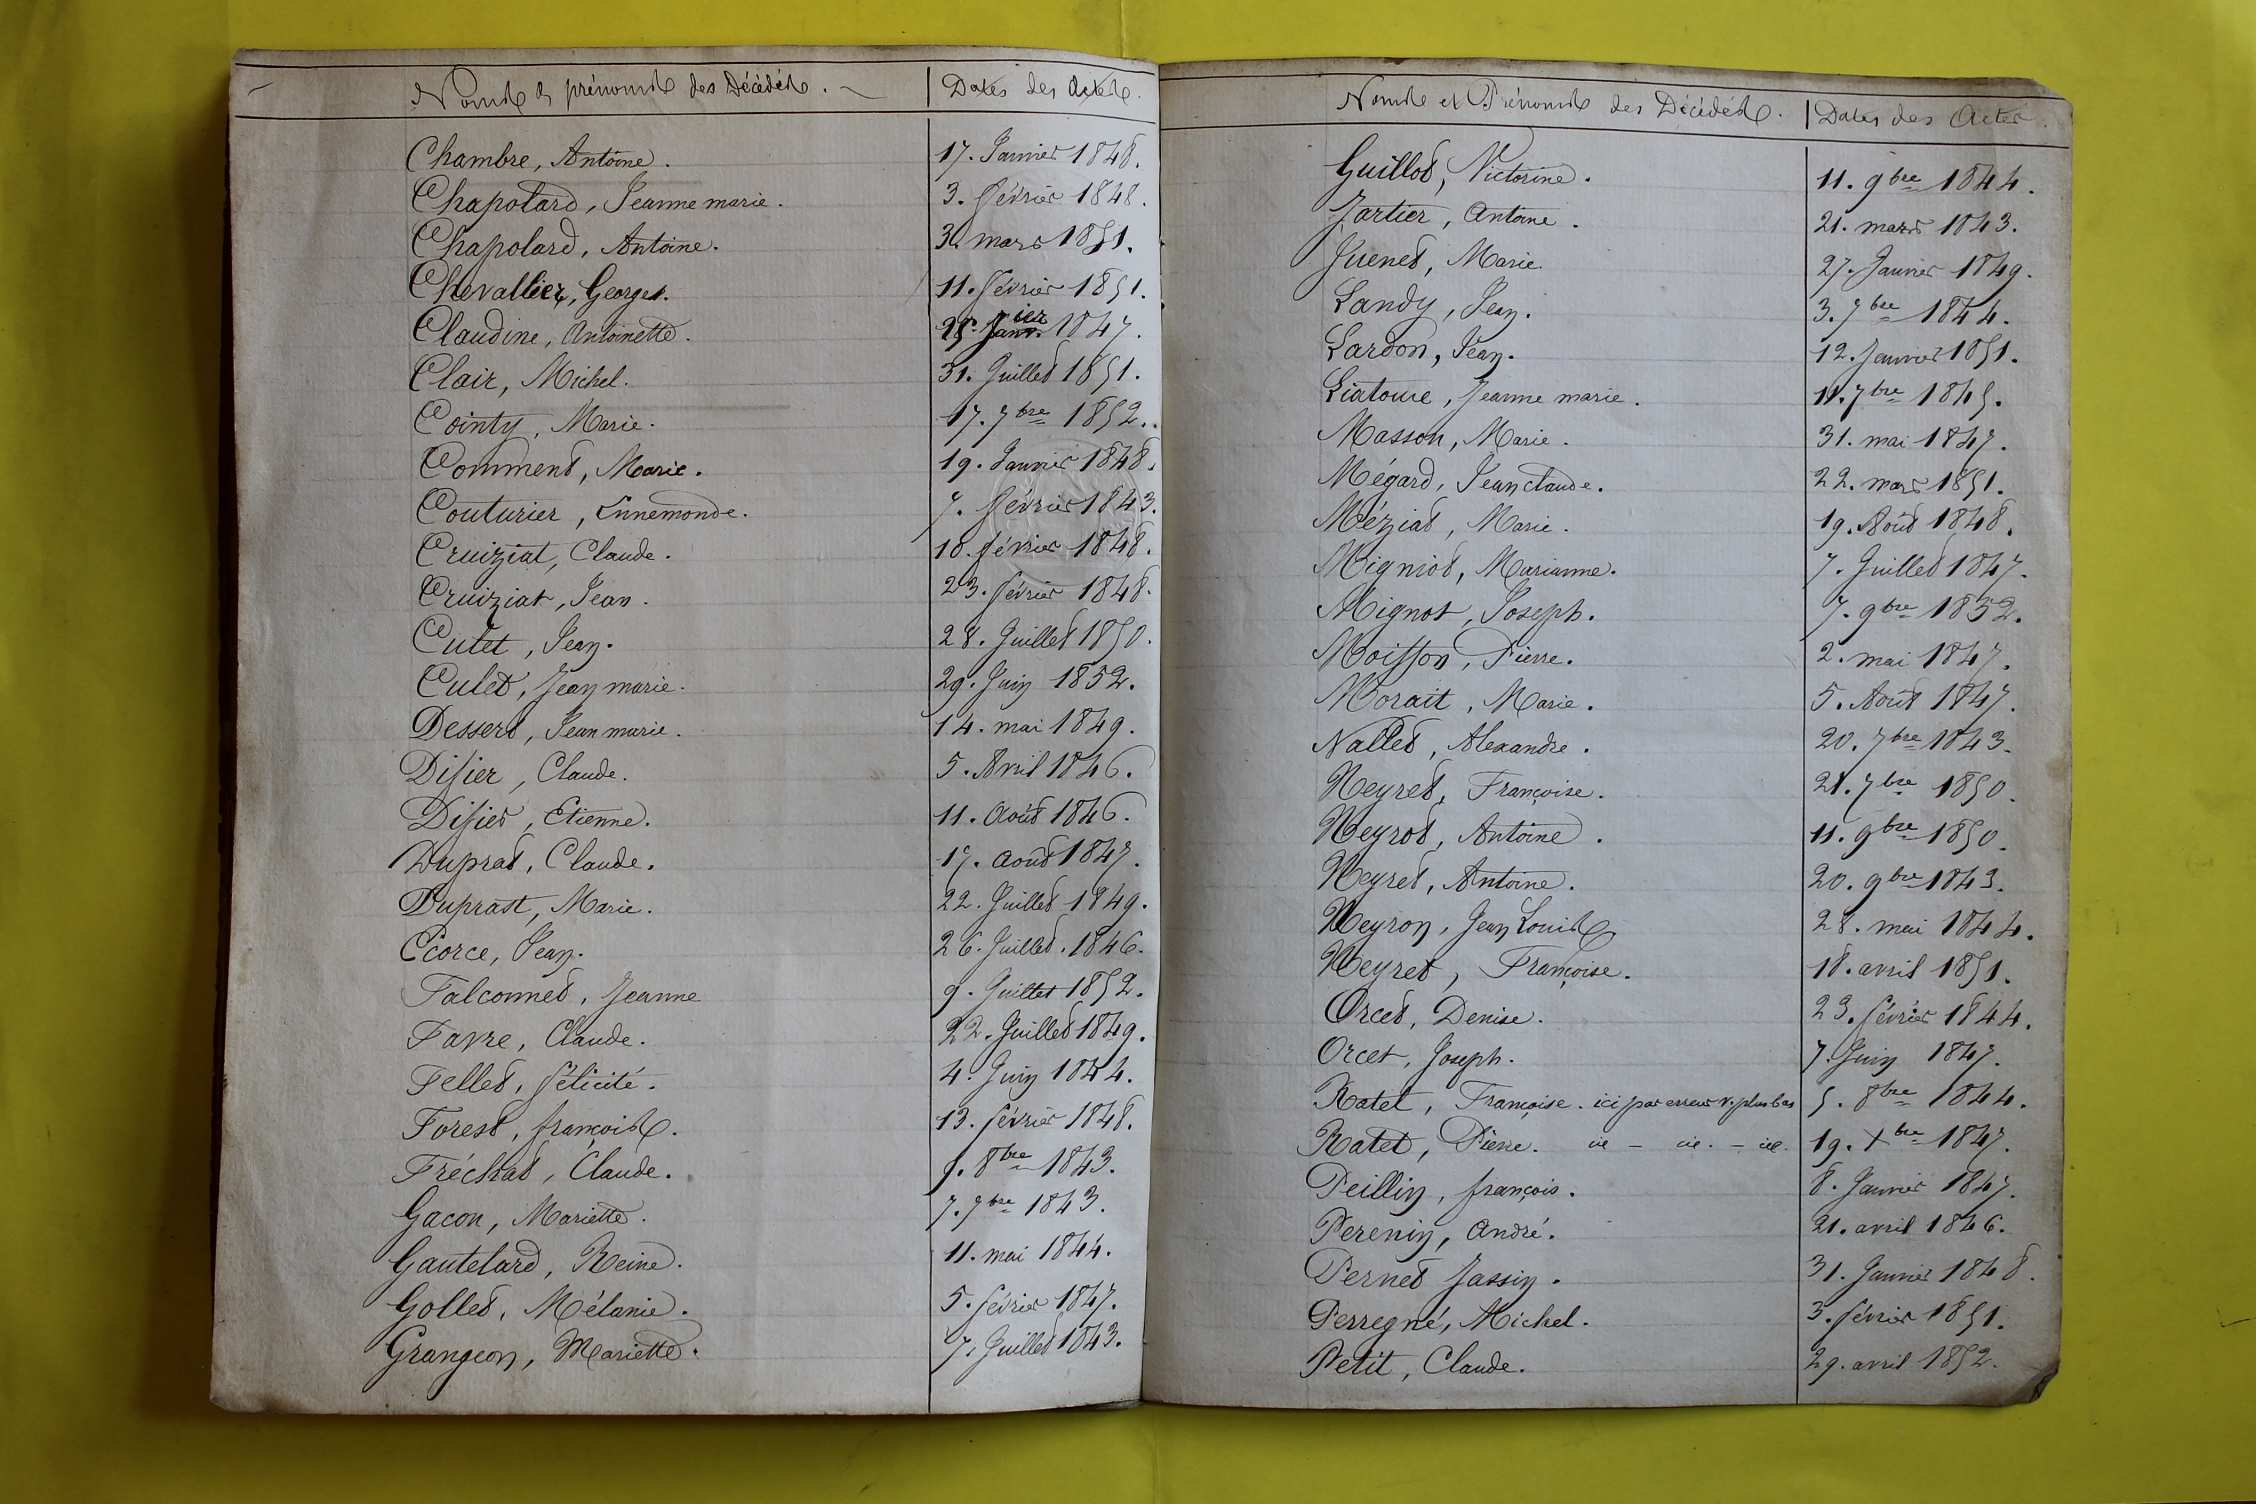 Noms & prénoms des Décédés. Dates des Actes.
Chambre, Antoine. 17. Janvier 1848.
Chapolard, Jeanne marie. 3. février 1848.
Chapolard, Antoine. 3. mars 1851.
Chevallier, Georges. 11. février 1851.
Claudine, Antoinette. 25. Janvier 1847.
Clair, Michel. 31. Juillet 1851.
Cointy, Marie. 17. 7bre 1852.
Comment, Marie. 19. Janvier 1848.
Couturier, Ennemonde. 7. février 1843.
Cruiziat, Claude. 18. février 1848.
Cruiziat, Jean. 23. février 1848.
Culet, Jean. 28. Juillet 1850.
Culet, Jean marie. 29. Juin 1852.
Dessert, Jean marie. 14. mai 1849.
Disier, Claude. 5. Avril 1846.
Disier, Etienne. 11. Août 1846.
Duprat, Claude. 17. Août 1847.
Duprast, Marie. 22. Juillet 1849.
Ecorce, Jean. 26. Juillet. 1846.
Falconnet, Jeanne 9. Juillet 1852.
Favre, Claude. 22. Juillet 1849.
Fellet, félicité. 4. Juin 1844.
Forest, françois. 13. février 1848.
Fréchat, Claude. 9. 8bre 1843.
Gacon, Mariette. 7. 9bre 1843.
Gautelard, Reine. 11. mai 1844.
Gollet, Mélanie. 5. février 1847.
Grangeon, Mariette. 7. Juillet 1843.
Noms et Prénoms des Décédés. Dates des Actes.
Guillot, Victorine. 11. 9bre 1844.
Jartier, Antoine. 21. mars 1843.
Juenet, Marie 27. Janvier 1849.
Landy, Jean. 3. 7bre 1844.
Lardon, Jean. 12. Janvier 1851.
Liatoure, Jeanne marie. 11. 7bre 1845.
Masson, Marie. 31. mai 1847.
Mégard, Jean claude. 22. mars 1851.
Méziat, Marie. 19. Août 1848.
Migniot, Marianne. 7. Juillet 1847.
Mignot, Joseph. 7. 9bre 1852.
Moisson, Pierre. 2. mai 1847.
Morait, Marie. 5. Août 1847.
Nallet, Alexandre. 20. 7bre 1843.
Neyret, Françoise. 21. 7bre 1850.
Neyrot, Antoine. 11. 9bre 1850.
Neyret, Antoine. 20. 9bre 1843.
Neyron, Jean Louis 28. mai 1844.
Neyret, Françoise. 18. avril 1851.
Orcet, Denise. 23. février 1844.
Orcet, Joseph. 7. Juin 1847.
Ratet, Françoise. ici par erreur v. plus bas 5. 8bre 1844.
Ratet, Pierre. 19. Xbre 1847.
Peillin, françois. 8. Janvier 1847.
Perenin, André. 21. avril 1846.
Pernet Jassin. 31. Janvier 1848.
Perregné, Michel. 3. février 1851.
Petit, Claude. 29. avril 1852.